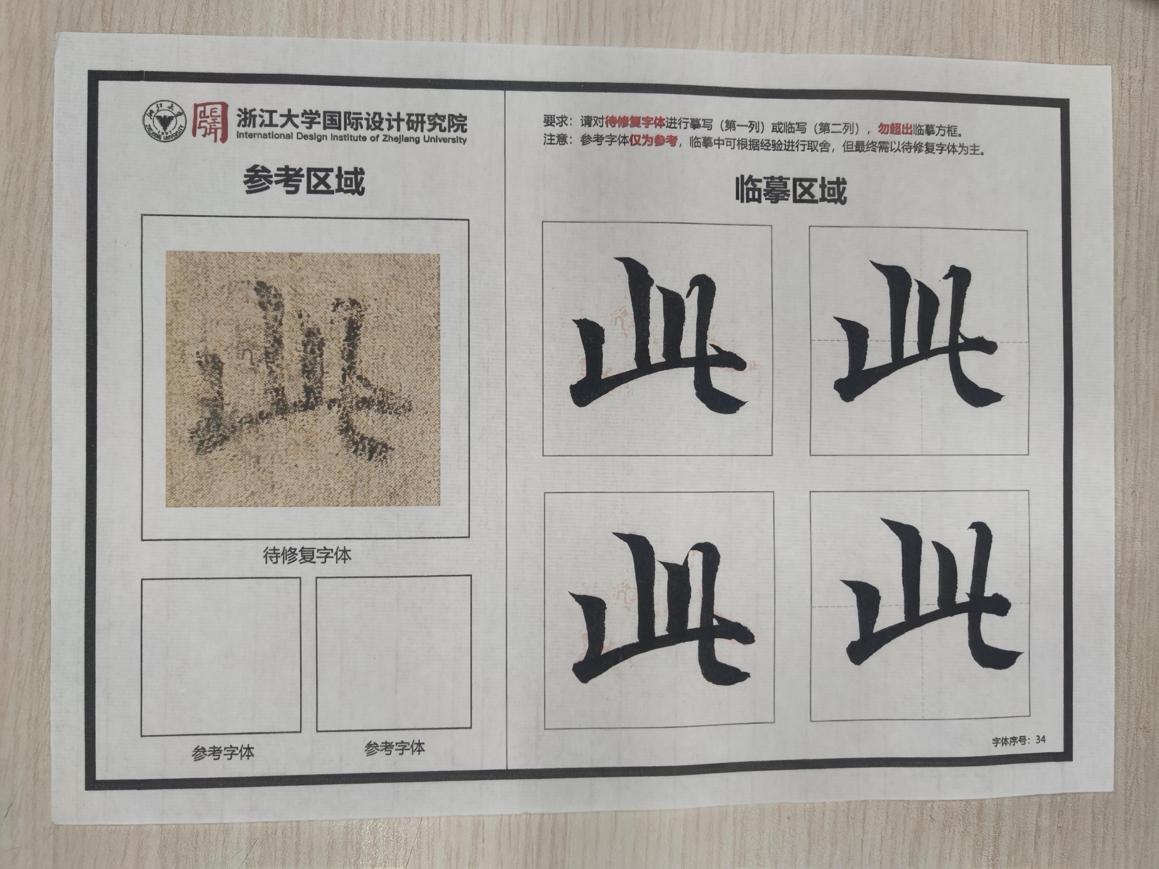 浙江大学国际设计研究院
International Design Institute of Zhejiang University
参考区域
此
待修复字体
参考字体
参考字体
要求：请对待修复字体进行摹写（第一列）或临写（第二列），勿超出临摹方框。
注意：参考字体仅为参考，临摹中可根据经验进行取舍，但最终需以待修复字体为主。
临摹区域
此 此
此 此
字体序号：34